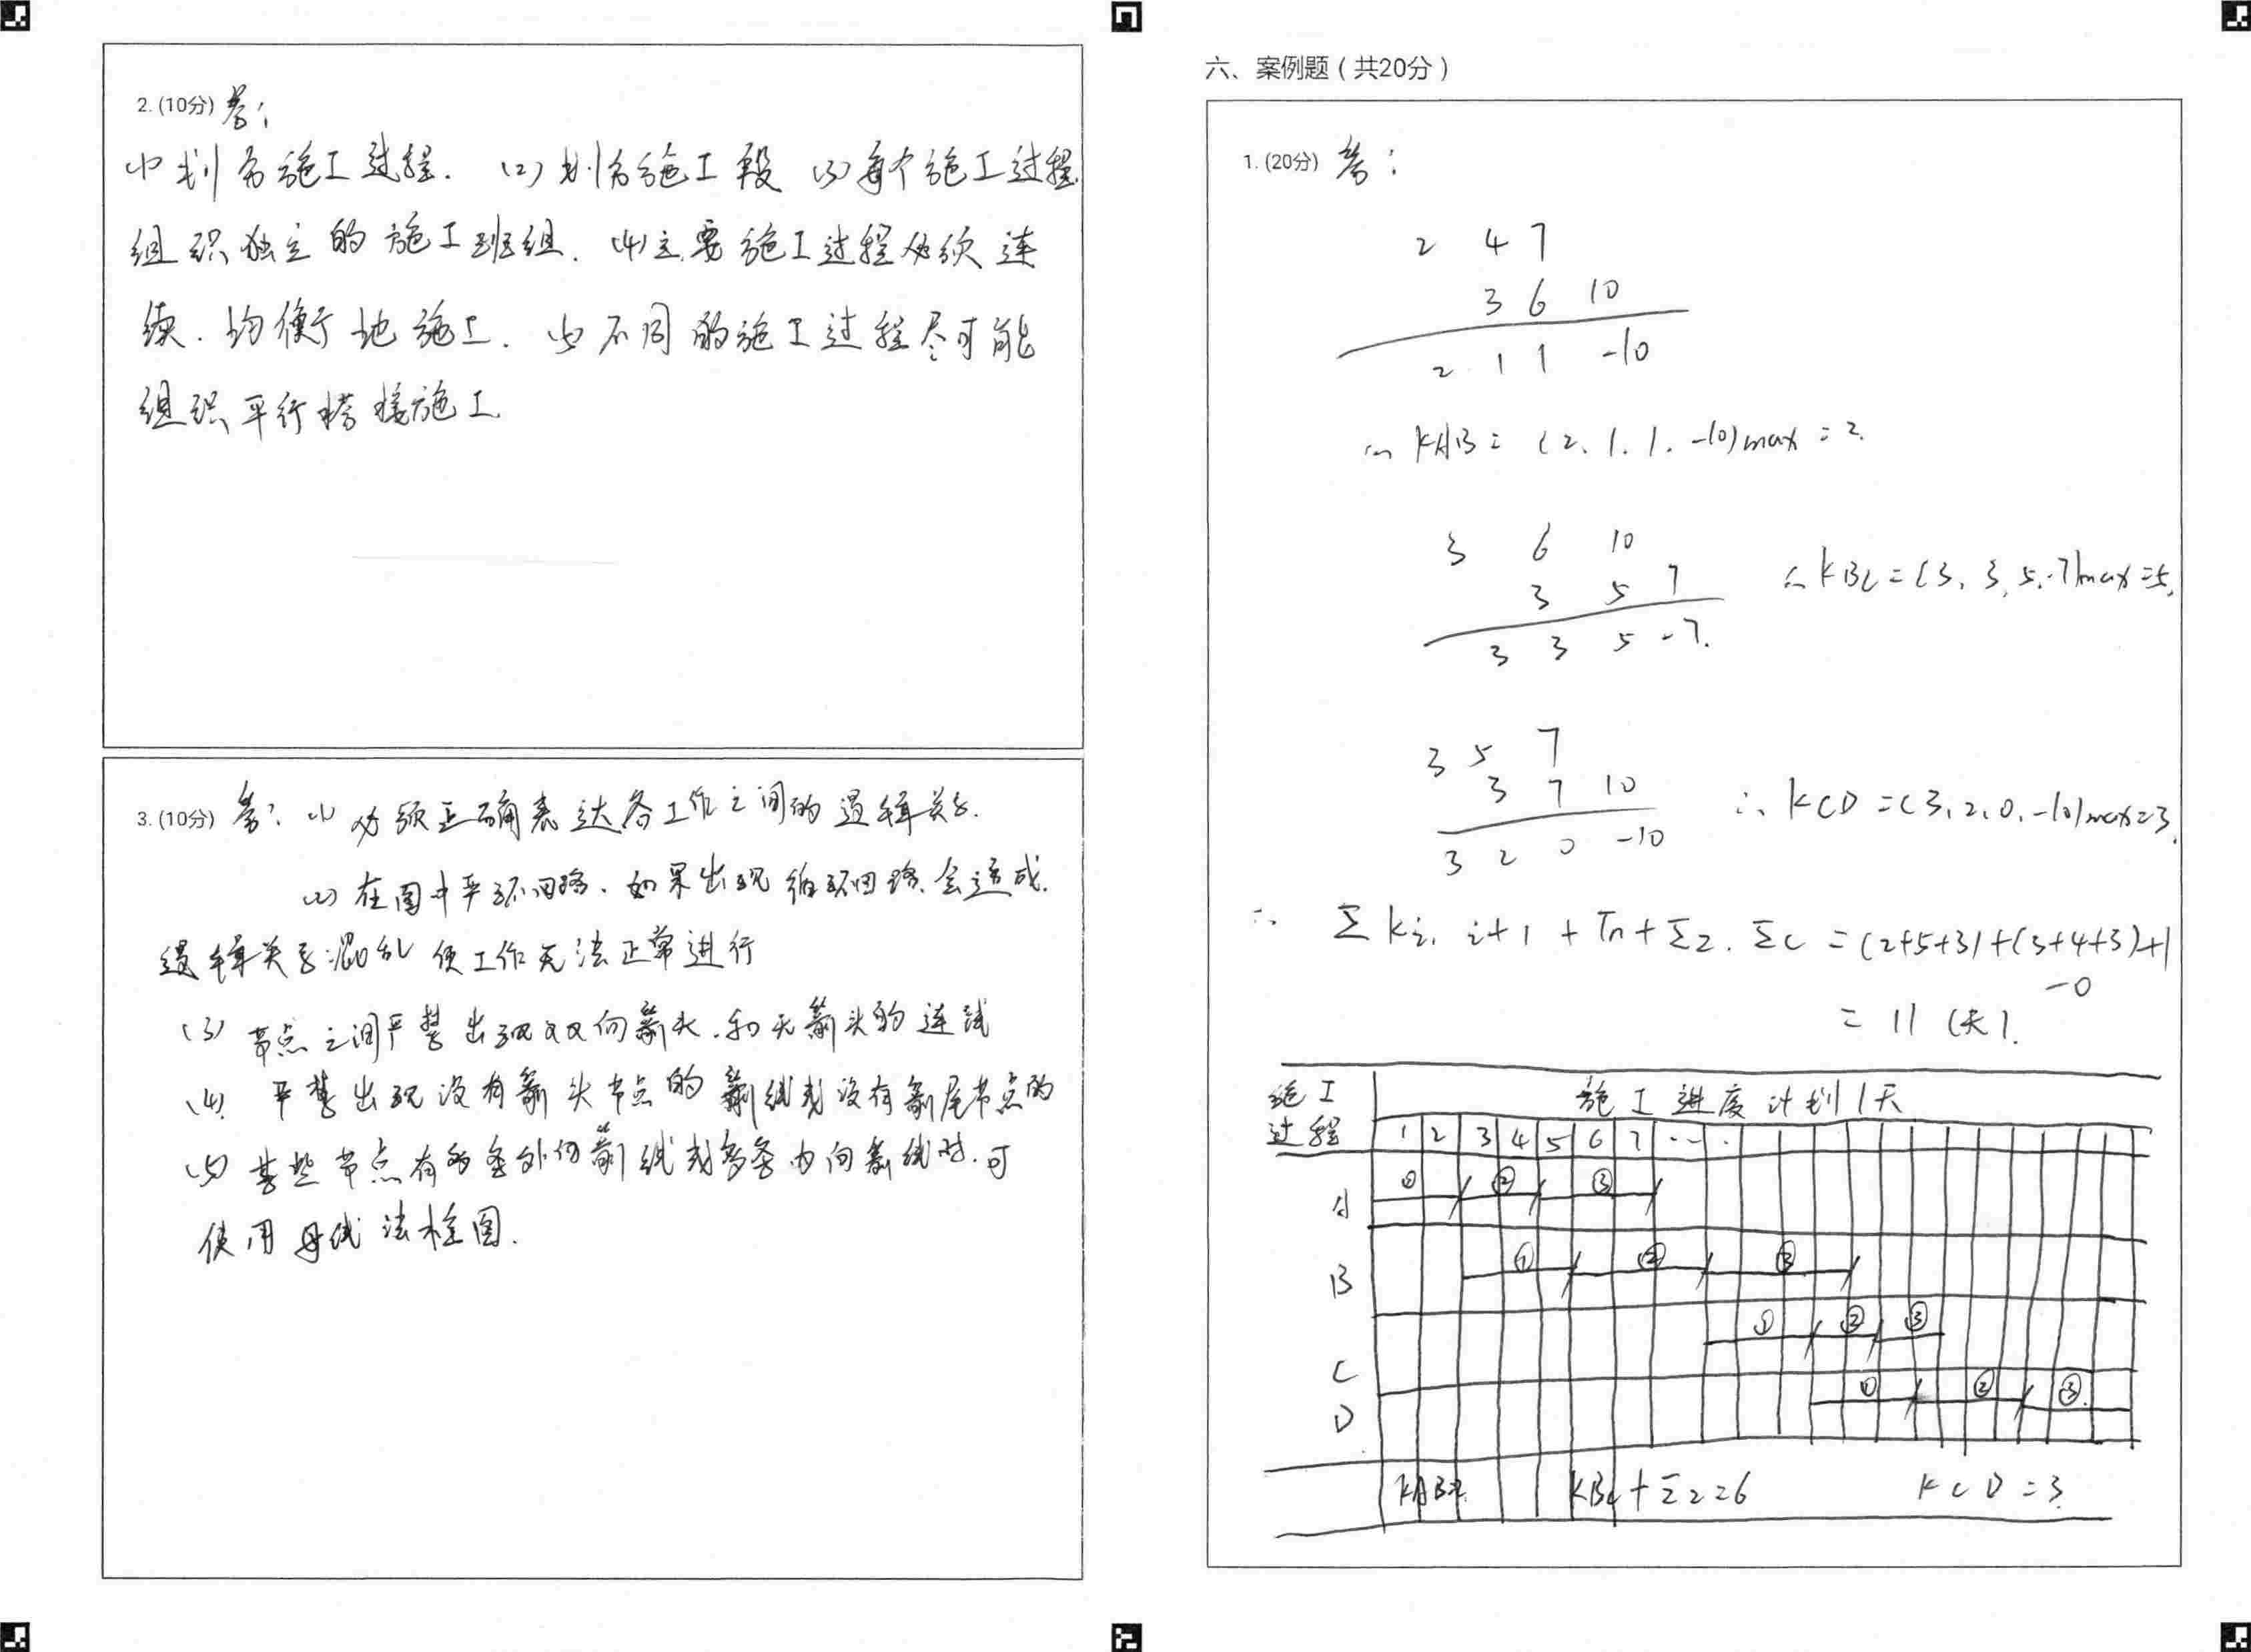 2. (10分) 答:
(1) 划分施工过程. (2) 划分施工段 (3) 每个施工过程
组织独立的施工班组. (4) 主要施工过程必须连
续. 均衡地施工. (5) 不同的施工过程尽可能
组织平行搭接施工
3. (10分) 答: (1) 必须正确表达各工作之间的逻辑关系.
(2) 在图中严环回路. 如果出现循环回路. 会造成.
逻辑关系混乱 使工作无法正常进行
(3) 节点之间严禁出现双向箭头. 和无箭头的连线
(4) 严禁出现没有箭头节点的箭线或没有箭尾节点的
(5) 某些节点有多条外向箭线或多条内向箭线时. 可
使用母线法绘图.
六、案例题（共20分）
1. (20分) 答:
2 4 7
3 6 10
2 1 1 -10
∴ KAB = (2. 1. 1. -10)max = 2.
3 6 10
3 5 7
3 3 5 -7.
∴ KBC = (3. 3. 5. -7)max = 5.
3 5 7
3 7 10
3 2 0 -10
∴ KCD = (3. 2. 0. -10)max = 3.
∴ Σ Ki, i+1 + Tn + ΣZ. ΣC = (2+5+3)+(3+4+3)+1
-0
= 11 (天).
施工
过程
施工进度计划 / 天
1 2 3 4 5 6 7 ...
A ① ② ③
B ① ② ③
C ① ② ③
D ① ② ③
KAB=2. KBC+ΣZ=6 KCD=3.